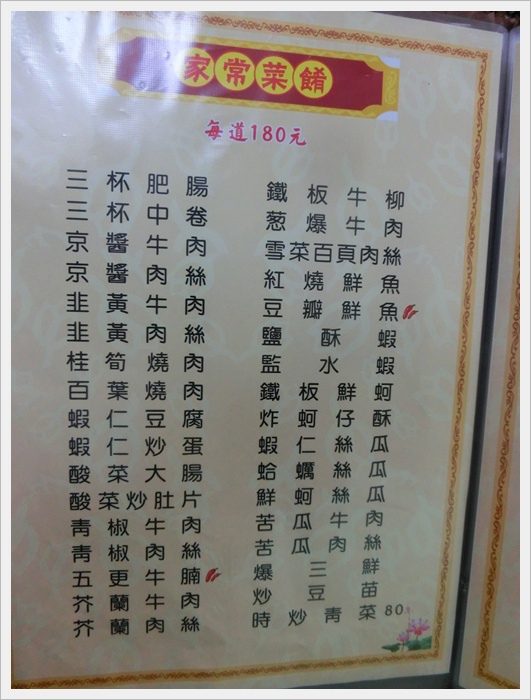 家常菜餚
每道180元
三杯肥腸
三杯中卷
京醬牛肉
京醬肉絲
韭黃牛肉
韭黃肉絲
桂筍燒肉
百葉燒肉
蝦仁豆腐
蝦仁炒蛋
酸菜大腸
酸菜炒肚片
青椒牛肉
青椒肉絲
五更牛腩
芥蘭牛肉
芥蘭肉絲
鐵板牛柳
葱爆牛肉
雪菜百頁肉絲
紅燒鮮魚
豆瓣鮮魚
鹽酥蝦
監水蝦
鐵板鮮蚵
炸蚵仔酥
蝦仁絲瓜
蛤蠣絲瓜
鮮蚵絲瓜
苦瓜牛肉
苦瓜肉絲
爆三鮮
炒豆苗
時炒青菜80